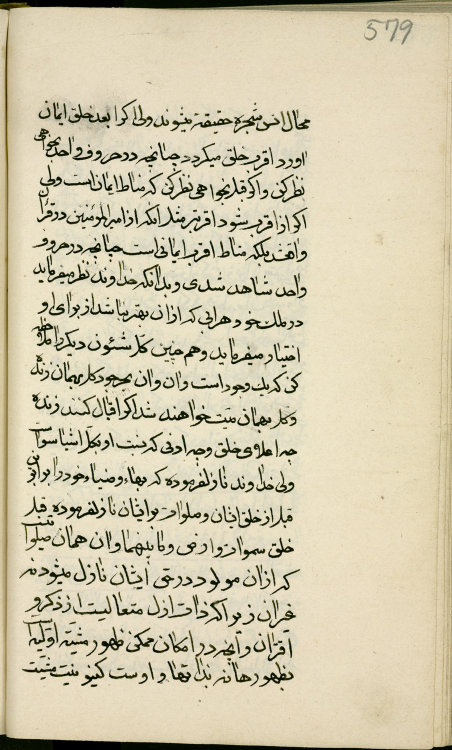 579
محال انس شجره حقیقة میشوند ولی اکر ابعد خلق ایمان
اورد اقرب خلق میکردد چنانچه در حروف واحد بخواهی
نظر کنی و اکر قبل بخواهی نظر کنی که مناط ایمان است ولی
اکر از اقرب شود اقرب تر مثل انکه از امیر المؤمنین در قران
بلکه مناط اقرب ایمانی است چنانچه در حروف
واحد شاهد شدی و بدانکه خداوند نظر میفرماید
در ملک خود هرانی که از ان بهتر نباشد از برای او
اختیار میفرماید و هم چنین کل شئون دیکر را ملاحظه
کن که یک وجود است و ان وان بوجود کل بهمان زنده
و کل بهمان میت خواهند شد اکر اقبال کنند زنده
چه اعلای خلق و چه ادنی که نسبت او بکل اشیا سواست
ولی خداوند نازل نفرموده که بهاء و ضیاء خود را برا
قبل از خلق ایشان و صلوات بر ایشان نازل فرموده قبل
خلق سموات و ارض و ما بینهما و ان همان صلوات
که از ان مولود در حق ایشان نازل میشود نه
غیر ان زیرا که ذات ازل متعالیست از ذکر و
اقتران و انچه در امکان ممکن ظهور مشیت اولیه است
بظهورها نه بذاتها و اوست کینونیت مشیت